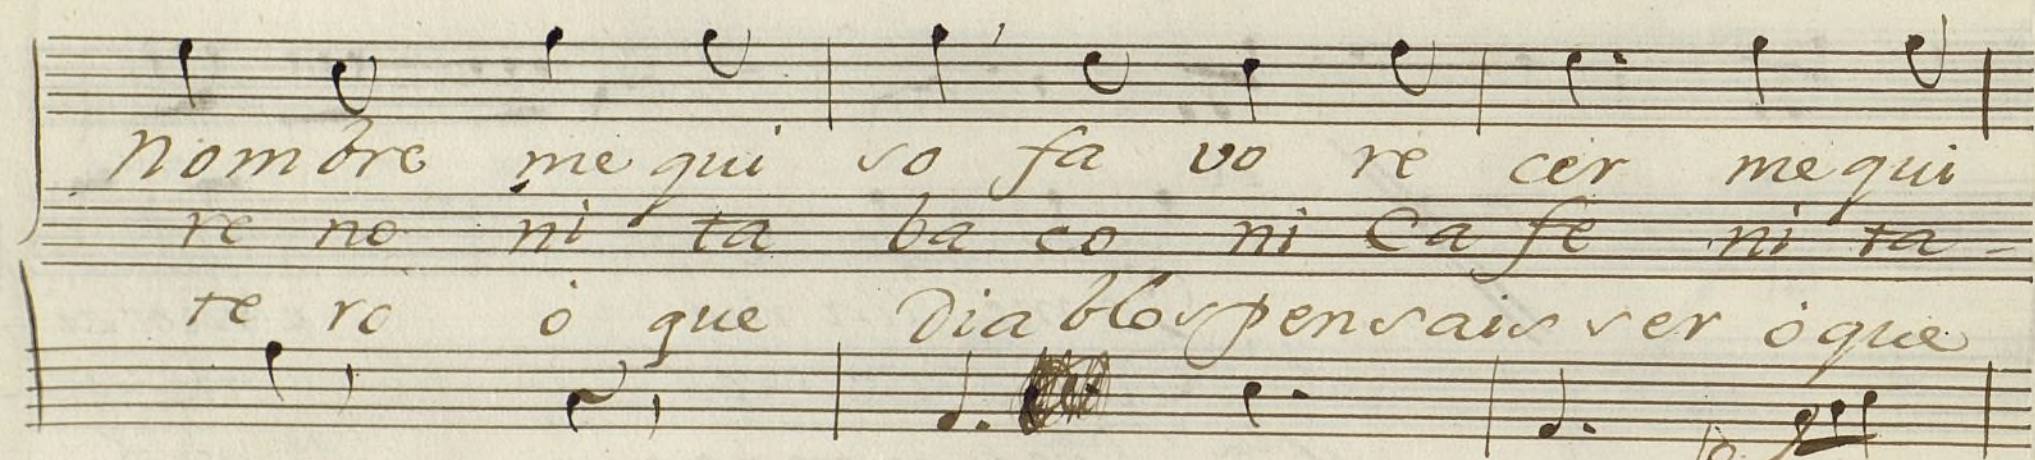 Nombre me qui so fa vo re cer me qui
re no ni ta ba co ni Ca fe ni ta-
te ro ò que Dia blos pensais ser ò que